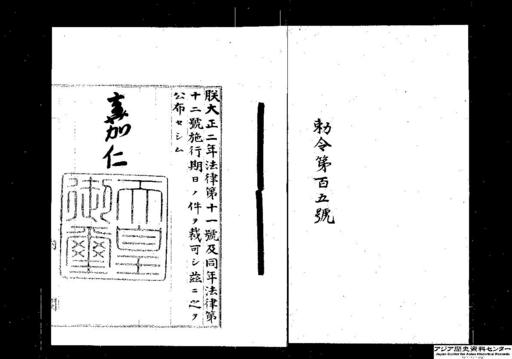 勅令第百五號
朕大正二年法律第十一號及同年法律第
十二號施行期日ノ件ヲ裁可シ茲ニ之ヲ
公布セシム
嘉仁
天皇
御璽
アジア歴史資料センター
Japan Center for Asian Historical Records